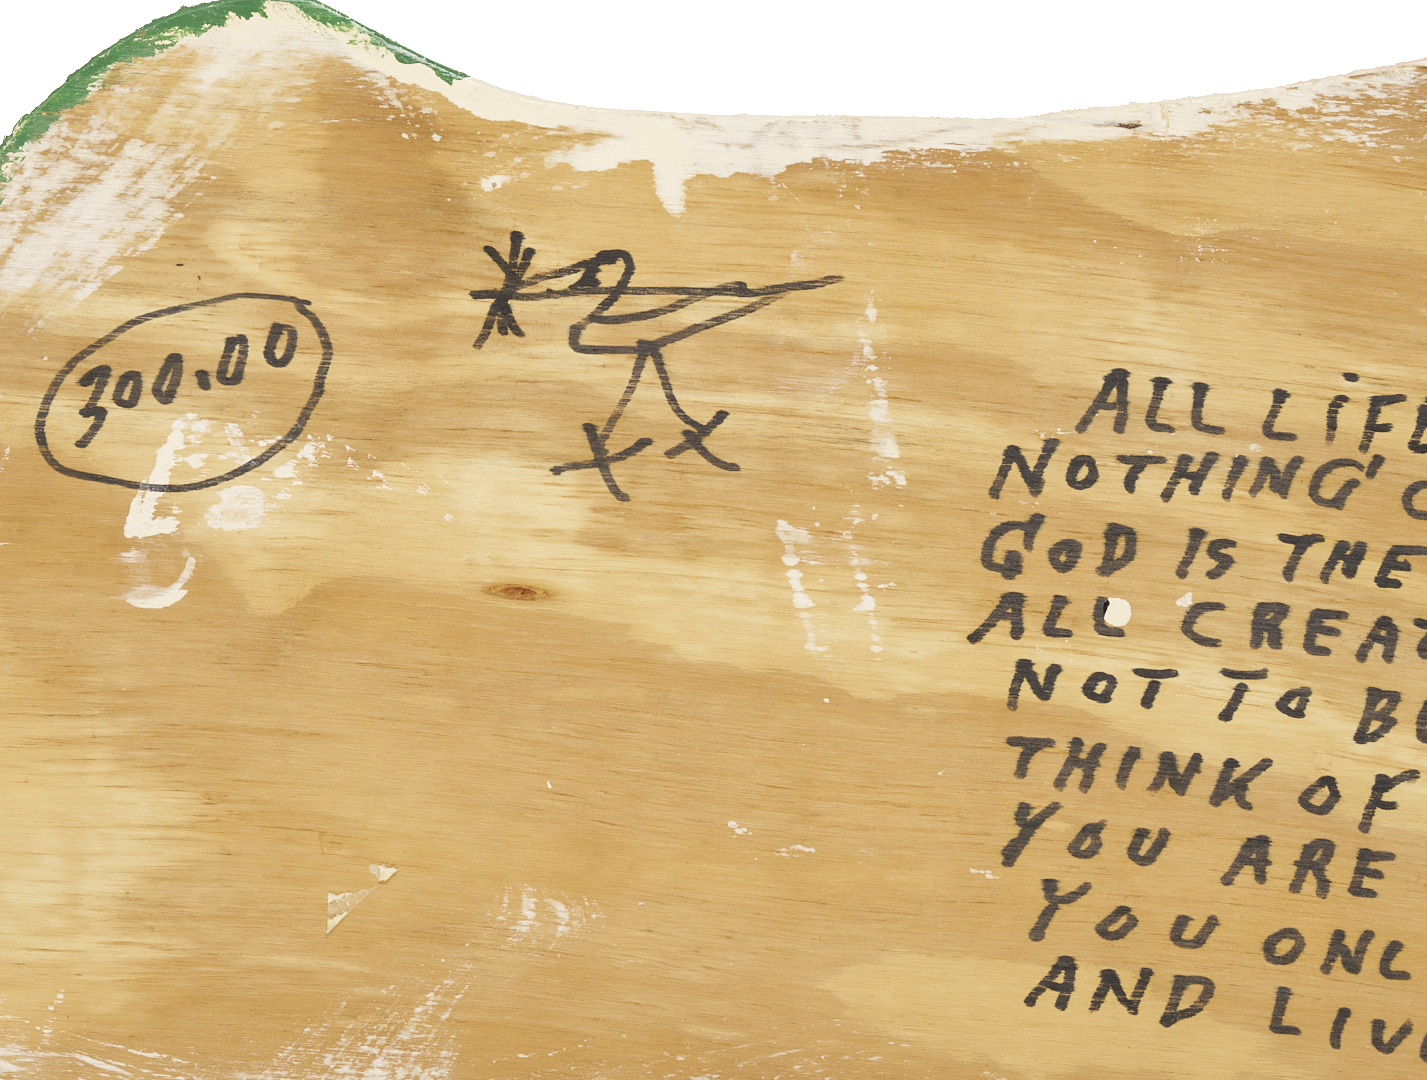 300.00
ALL LIFE
NOTHING
GOD IS THE
ALL CREAT
NOT TO BE
THINK OF
YOU ARE
YOU ONL
AND LIV